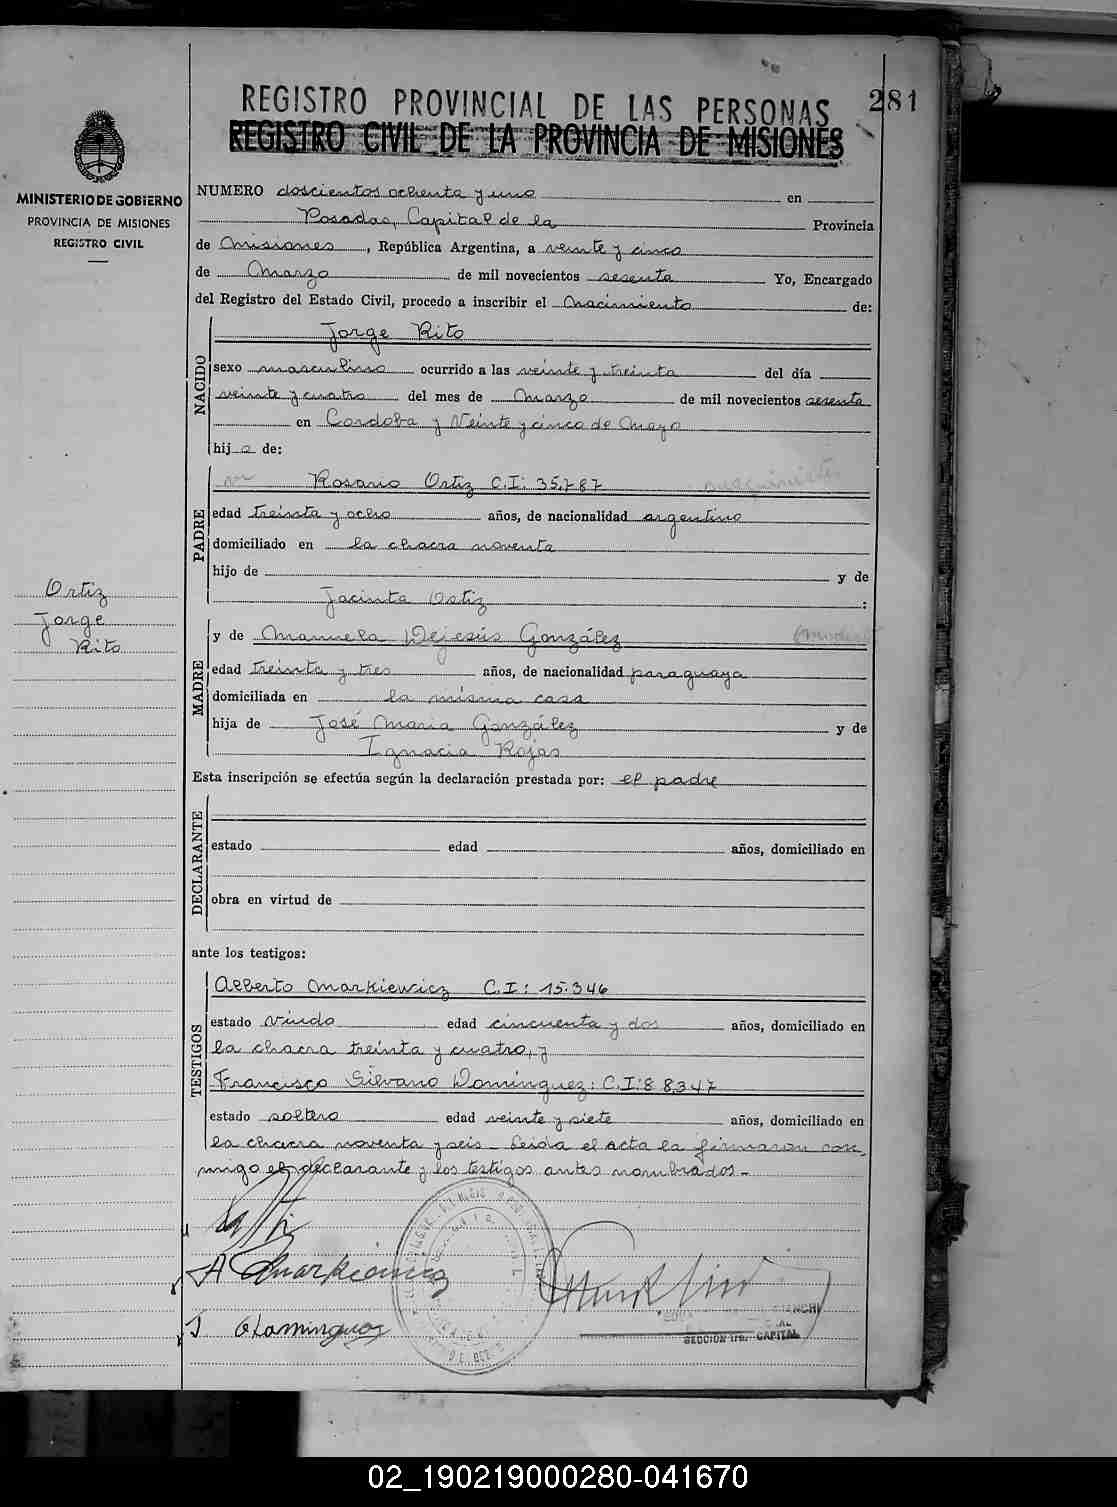 REGISTRO PROVINCIAL DE LAS PERSONAS
281
REGISTRO CIVIL DE LA PROVINCIA DE MISIONES
MINISTERIO DE GOBIERNO
PROVINCIA DE MISIONES
REGISTRO CIVIL
NUMERO doscientos ochenta y uno en
Posadas, Capital de la Provincia
de Misiones, República Argentina, a veinte y cinco
de Marzo de mil novecientos sesenta Yo, Encargado
del Registro del Estado Civil, procedo a inscribir el Nacimiento de:
NACIDO
Jorge Rito
sexo masculino ocurrido a las veinte y treinta del día
veinte y cuatro del mes de Marzo de mil novecientos sesenta
en Cordoba y Veinte y cinco de Mayo
hijo de:
PADRE
Rosario Ortiz C.I: 35.787
edad treinta y ocho años, de nacionalidad argentino
domiciliado en la chacra noventa
hijo de y de
Jacinta Ortiz :
Ortiz
Jorge
Rito
MADRE
y de Manuela Dejesús González
edad treinta y tres años, de nacionalidad paraguaya
domiciliada en la misma casa
hija de José Maria González y de
Ignacia Rojas
Esta inscripción se efectúa según la declaración prestada por: el padre
DECLARANTE
estado edad años, domiciliado en
obra en virtud de
ante los testigos:
TESTIGOS
Alberto Markiewicz C.I: 15.346
estado viudo edad cincuenta y dos años, domiciliado en
la chacra treinta y cuatro, y
Francisco Silvano Domínguez: C.I: 88347
estado soltero edad veinte y siete años, domiciliado en
la chacra noventa y seis - Leida el acta la firmaron con-
migo el declarante y los testigos antes nombrados -
A Markiewicz
Dominguez
SECCION 1ra. CAPITAL
02_190219000280-041670